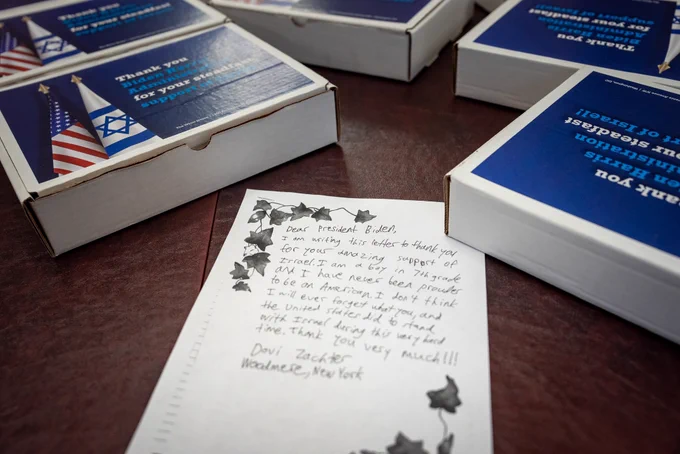 Thank you
Thank you
Biden
for your steadfast
support of
Thank you
for your steadfast
support of Israel!
Thank you
Biden Harris
Administration
for your steadfast
support of Israel!
Thank you
Harris
ministration
your steadfast
rt of Israel!
Dear President Biden,
I am writing this letter to thank you
for your amazing support of
Israel. I am a boy in 7th grade
and I have never been prouder
to be an American. I don't think
I will ever forget what you, and
the United States did to stand
with Israel during this very hard
time. Thank you very much!!!
Dovi Zachter
Woodmere, New York